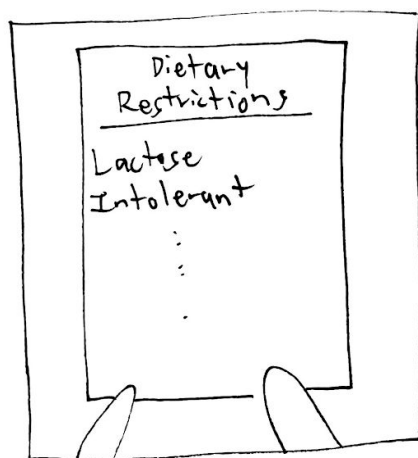 Dietary
Restrictions
Lactose
Intolerant